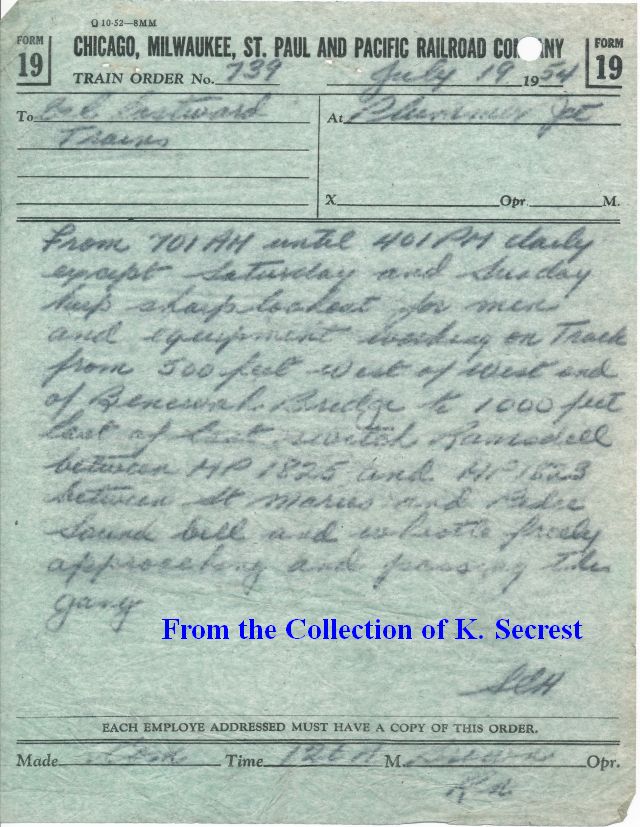 Q 10-52—8MM
FORM 19
CHICAGO, MILWAUKEE, ST. PAUL AND PACIFIC RAILROAD COMPANY
FORM 19
TRAIN ORDER No. 739 July 19 1954
To C&E Eastward
Trains
At Plummer Jct
X Opr. M.
From 701 AM until 401 PM daily
except Saturday and Sunday
keep sharp lookout for men
and equipment working on Track
from 500 feet west of west end
of Benewah Bridge to 1000 feet
East of East switch Ramsdell
between MP 1825 and MP 1823
between St Maries and Pedee
Sound bell and whistle freely
approaching and passing this
gang
From the Collection of K. Secrest
EACH EMPLOYE ADDRESSED MUST HAVE A COPY OF THIS ORDER.
Made Com Time M. Opr.